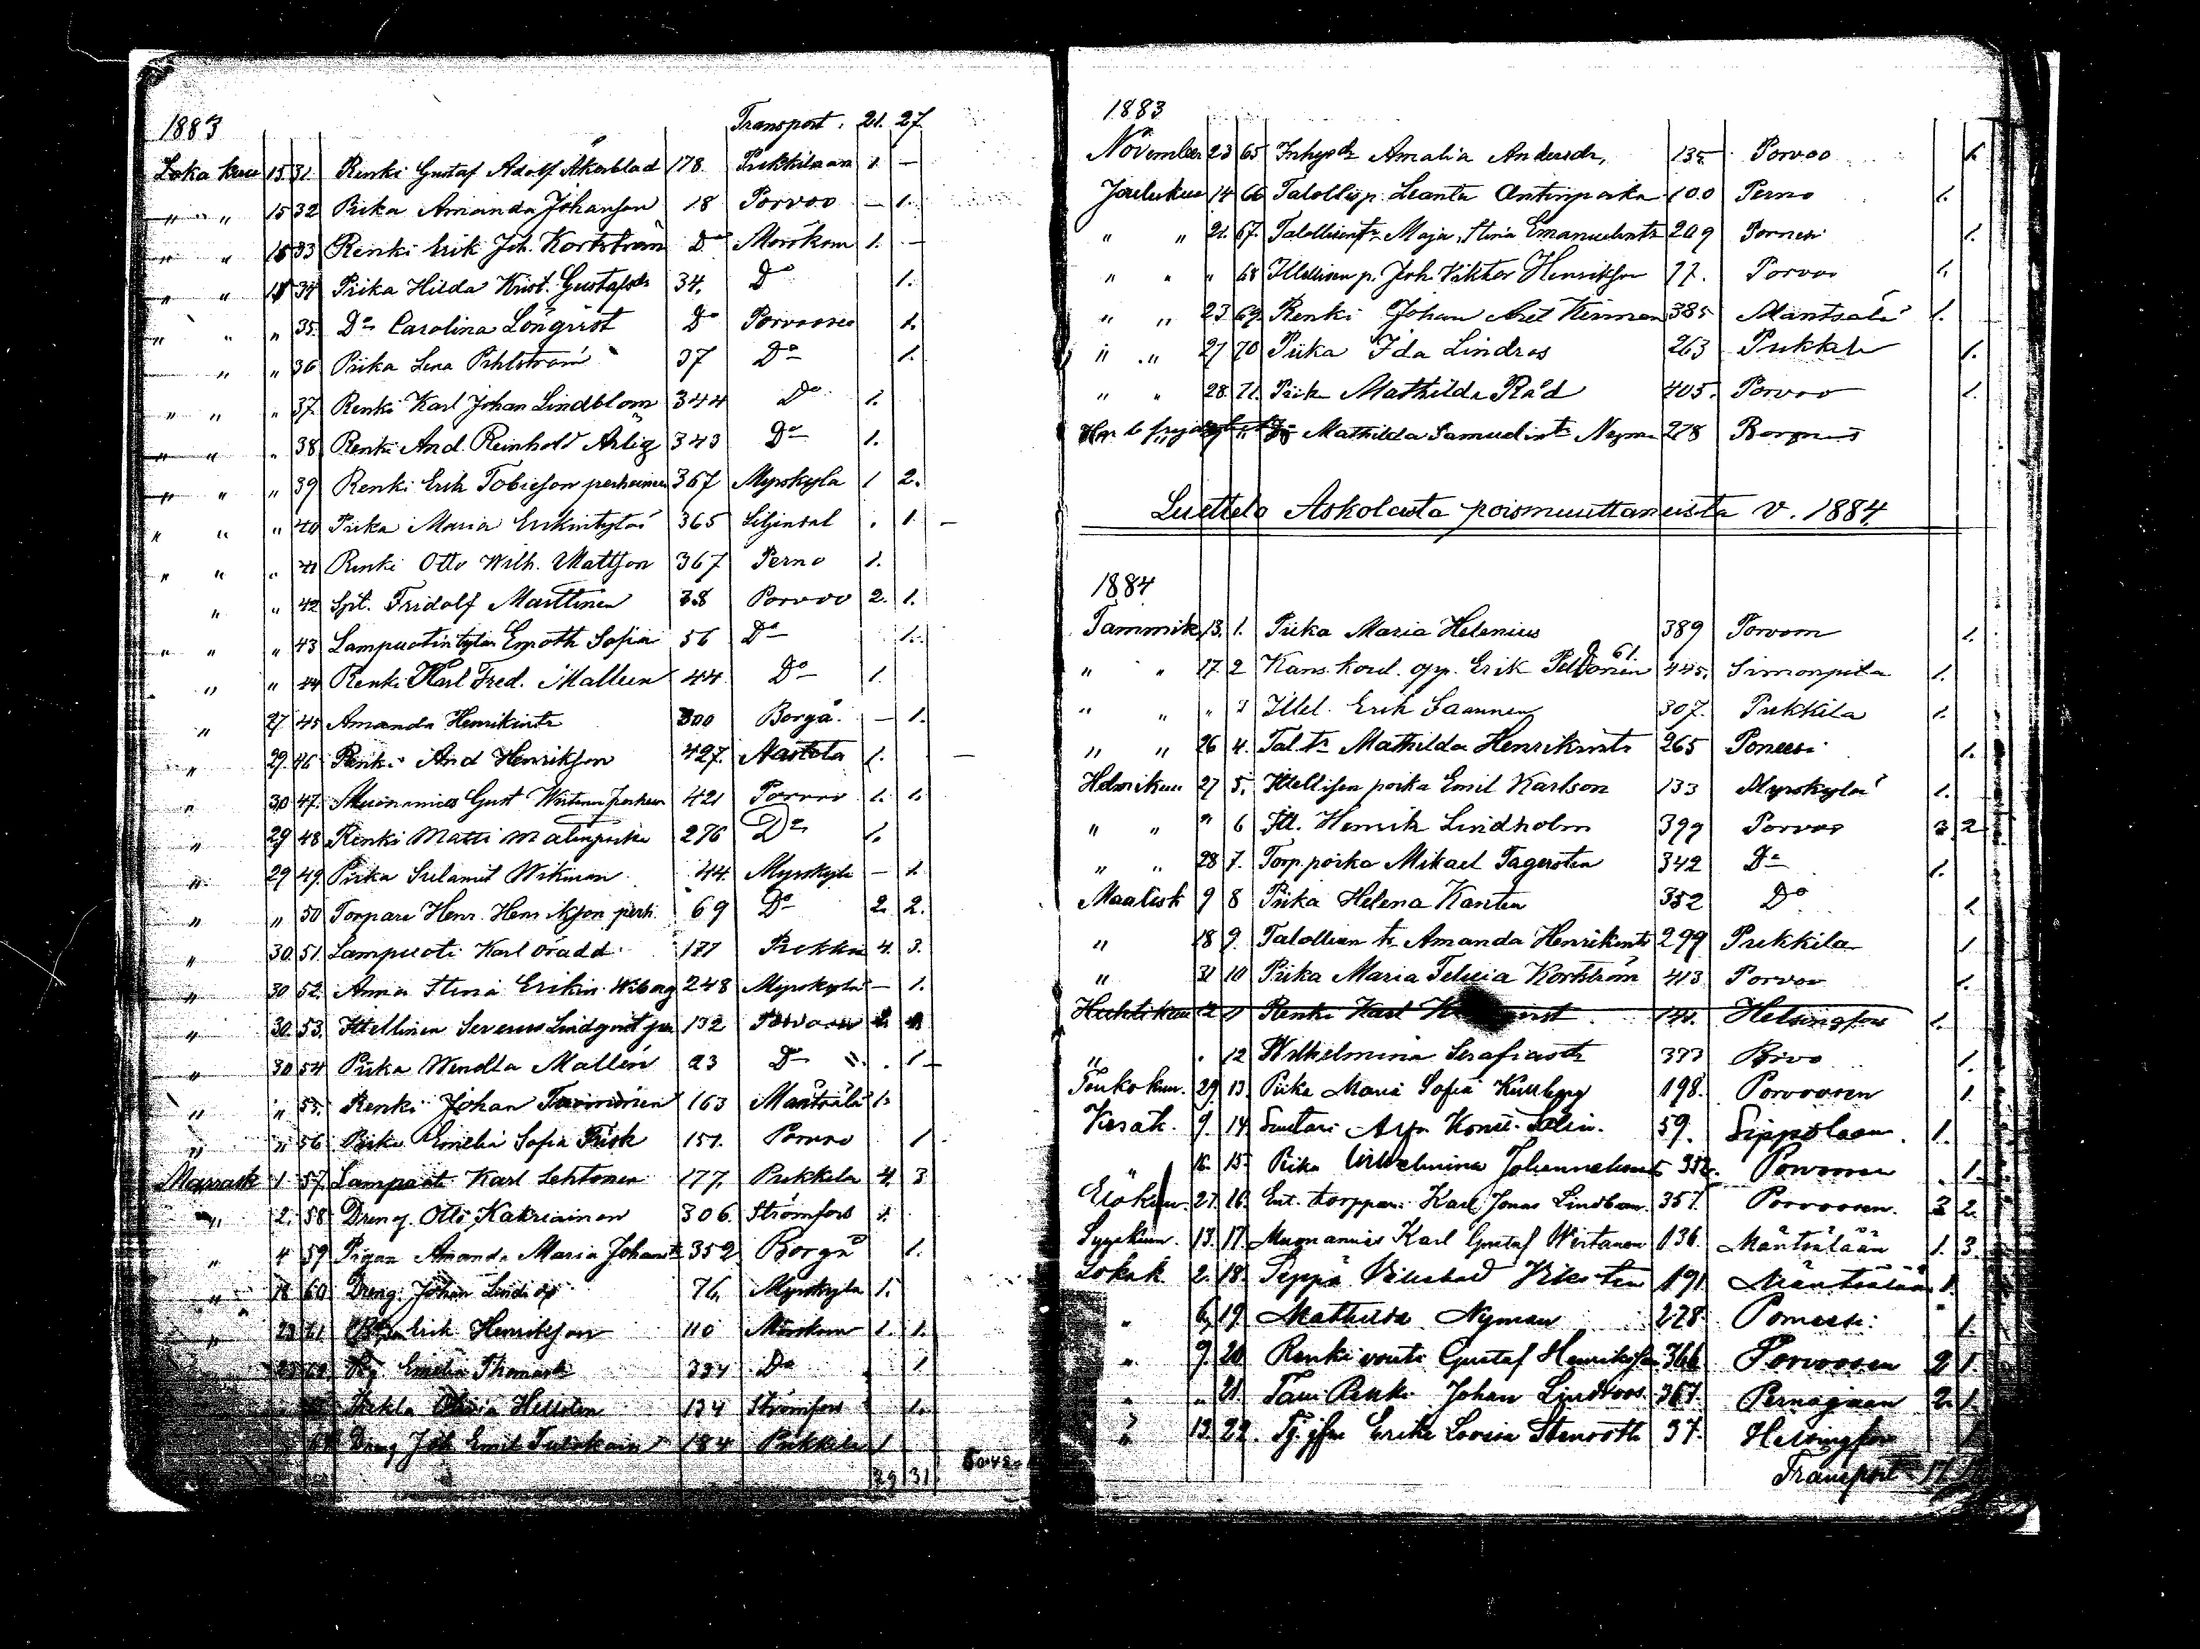 1883 Transport. 21. 27
Loka kuu 15 31. Renki Gustaf Adolf Åkerblad 178. Pukkilaan 1. —
" " " 15 32 Piika Amanda Johansson 18 Porvoo — 1.
" " 15 33 Renki Erik Joh. Kortström Do Mörskom 1. —
" " 15 34 Piika Hilda Krist. Gustafsdr 34. Do 1.
" " " 35. Do Carolina Lönqvist Do Porvooseen 1.
" " 36 Piika Lena Pihlström 37 Do 1.
" " " 37. Renki Karl Johan Lindblom 344 Do 1.
" " " 38. Renki And. Reinhold Ärlig 343 Do 1.
" " " 39 Renki Erik Tobiesson perheineen 367 Myrskyla 1 2.
" " " 40 Piika Maria Erikintytär 365 Liljendal . 1. —
" " " 41 Renki Otto Wilh. Mattsson 367 Perno 1.
" " 42 Spt. Fridolf Marttinen 38 Porvoo 2. 1.
" " " 43 Lampuotin tytär Sofia 56 Do 1.
" " 44 Renki Karl Fred. Malleen 44 Do 1.
" 27 45 Amanda Henrikintr 300 Borgå. — 1.
" 29. 46 Renki And Henriksson 427. Nastola 1. —
" 30 47. Muonamies Gust Wirtanen perheen 421 Porvoo 1. 1.
" 29 48 Renki Matti Matinpoika 276 Do 1.
" 29 49. Piika Sulamit Wikman 44. Myrskyla — 1.
" " 50 Torpare Henr. Henriksson perh. 69 Do 2. 2.
" 30. 51. Lampuoti Karl 177 Pukkila 4. 3.
" 30 52. Anna Stina Erikin. Wiberg 248 Myrskyla — 1.
" 30. 53. Ittellinen Severus Lindqvist 132 Porvoon
" 30 54 Piika Wendla Mallén 23 Do " . 1 —
" " 55. Renki Johan 163 Mäntsälä 1.
" " 56 Piika Emelia Sofia Frisk 151. Porvoo 1
Marrask 1. 57. Lampuoti Karl Lehtonen 177. Pukkila 4. 3
" 2. 58 Dreng. Otto Kakriainen 306. Strömfors 1.
" 4 59 Pigan Amanda Maria Johansdr 352 Borgå 1.
" 18 60 Dreng. Johan Lindroos 76. Myrskyla 1.
" 23 61 Erik Henriksson 110 Mörskom 1. 1.
23 62. Pig. Emelia Thomasdr 334 Do 1
Olivia Hellsten 134 Strömfors 1.
64 Dreng Joh Emil 184 Pukkila 1
29 31.
1883
November 23 65 Inhysdr Amalia Andersdr, 135. Porvoo 1.
Joulukuu 14 66 Talollisp. Antinpoika 100 Perno 1.
" " 21. 67. Talollisentr Maja Stina Emanuelintr 209 Porneesi 1.
" " " 68 Itellisen p. Joh Viktor Henriksson 77. Porvoo 1.
" " 23 69 Renki Johan Axel 385 Mäntsälä 1.
" " 27 70 Piika Ida Lindros 263 Pukkila 1.
" " 28. 71. Piika Mathilda Råd 405. Porvoo 1.
Mathilda Samuelintr Nyman 278 Borgnäs
Luettelo Askolasta poismuuttaneista v. 1884
1884
Tammik. 13. 1. Piika Maria Helenius 389 Porvoon 1.
61.
" " 17. 2 Kans. koul. opp. Erik Peltonen 445. Simonpila 1.
" " " 3 Ittel. Erik Saarinen 307. Pukkila 1.
" " 26 4. Tal. tr Mathilda Henrikintr 265 Poneesi 1.
Helmikuu 27 5. Ittellisen poika Emil Karlson 133 Myrskylä 1.
" " " 6 Itt. Henrik Lindholm 399 Porvoo 3 2
" " 28 7. Torp. poika Mikael Tagersten 342 Do 1.
Maalisk 9 8 Piika Helena Kanten 352 Do 1.
" 18 9. Talollisen tr Amanda Henrikintr 299 Pukkila 1
" 31 10 Piika Maria Kortström 413 Porvoo 1.
Huhtikuu 12 11 Renki Karl 144. Helsingfors 1.
" . 12 Wilhelmina Serafiasdr 333 1.
Toukokuu. 29. 13. Piika Maria Sofia Kullberg 198. Porvooseen 1.
Kesäk. 9. 14 Suutari 59. Sippolaan. 1.
" 16. 15. Piika Wilhelmina Johanneksent 352. Porvooseen 1.
Elokuu. 27. 16. Ent. torppari Karl Jonas Lindbom. 357. Porvooseen. 3 2.
Syyskuu. 13. 17. Muonamies Karl Gustaf Wirtanen 136. Mäntsälään 1. 3.
Lokak 2. 18. Seppä 191 Mäntsälään 1.
" 6. 19. Mathilda Nyman 278 Porneesi: 1.
" 9. 20. Renki vouti Gustaf Henriksson 366. Porvooseen 2 1.
" " 21. Renki Johan Lindroos 367. Pernajaan 2. 1.
" 13. 22. Erika Lovisa Stenroth 37. Helsingfors 1
Transport